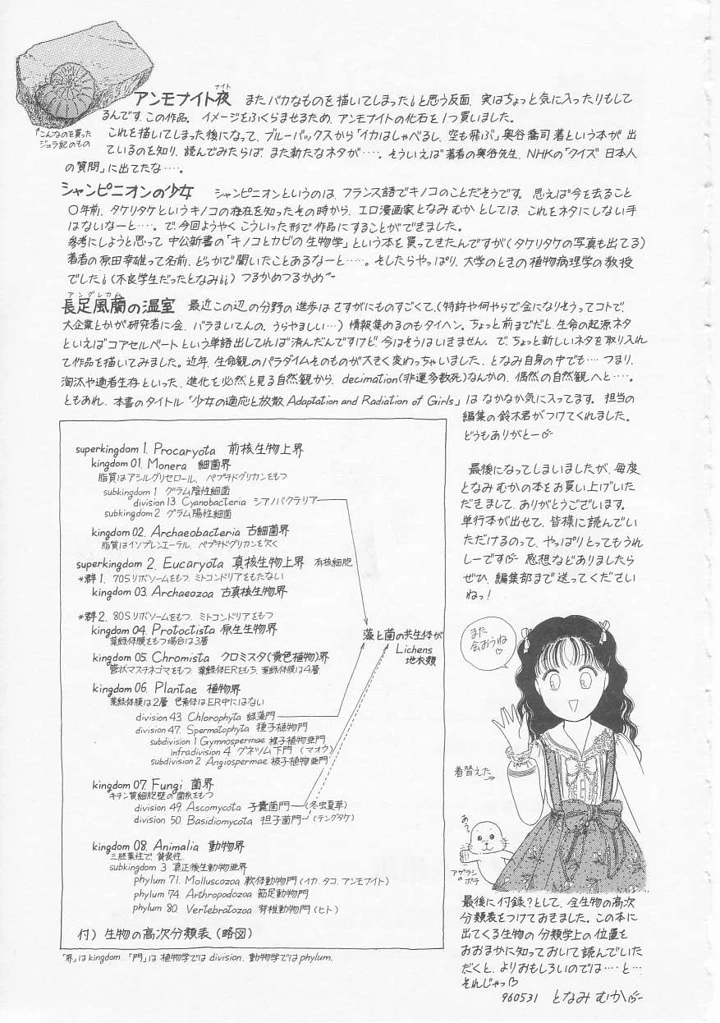 ナイト
アンモナイト夜 またバカなものを描いてしまったと思う反面、実はちょっと気に入ったりもして
るんです、この作品。イメージをふくらませるため、アンモナイトの化石を1つ買いました。
これを描いてしまった後になって、ブルーバックスから「イカはしゃべるし、空も飛ぶ」奥谷喬司著という本が出
ているのを知り、読んでみたらば、また新たなネタが……。そういえば著者の奥谷先生、NHKの「クイズ日本人
の質問」に出てたな…。
こんなのを買った
ジュラ紀のもの
シャンピニオンの少女 シャンピニオンというのは、フランス語でキノコのことだそうです。思えば今を去ること
〇年前、タケリタケというキノコの存在を知ったその時から、エロ漫画家となみむかとしては、これをネタにしない手
はないなーと……。で、今回ようやくこういった形で作品にすることができました。
参考にしようと思って中公新書の「キノコとカビの生物学」という本を買ってきたんですが(タケリタケの写真も出てる)
著者の原田幸雄って名前、どっかで聞いたことあるなーと……。そしたらやっぱり、大学のときの植物病理学の教授
でした(不良学生だったとなみ)つるかめつるかめ〜
アングレカム
長足風蘭の温室 最近この辺の分野の進歩はさすがにものすごくて、(特許や何やらで金になりそうってコトで、
大企業とかが研究者に金、バラまいてんの。うらやましい…)情報集めるのもタイヘン。ちょっと前までだと、生命の起源ネタ
といえばコアセルベートという単語出してれば済んだんですけど、今はそうはいきません。で、ちょっと新しいネタを取り入れ
て作品を描いてみました。近年、生命観のパラダイムそのものが大きく変わっちゃいました、となみ自身の中でも…。つまり、
淘汰や適者生存といった、進化を必然と見る自然観から、decimation(非運多数死)なんかの、偶然の自然観へと……。
ともあれ、本書のタイトル「少女の適応と放散 Adaptation and Radiation of Girls」はなかなか気に入ってます。担当の
編集の鈴木君がつけてくれました。
どうもありがとー
最後になってしまいましたが、毎度
となみむかの本をお買い上げいた
だきまして、ありがとうございます。
単行本が出せて、皆様に読んでい
ただけるのって、やっぱりとってもうれ
しーです 感想などありましたら
ぜひ、編集部まで送ってください
ねっ!
superkingdom 1. Procaryota 前核生物上界
kingdom 01. Monera 細菌界
脂質はアシルグリセロール、ペプチドグリカンをもつ
subkingdom 1 グラム陰性細菌
division 13 Cyanobacteria シアノバクテリア
subkingdom 2 グラム陽性細菌
kingdom 02. Archaeobacteria 古細菌界
脂質はイソプレンエーテル、ペプチドグリカンを欠く
superkingdom 2. Eucaryota 真核生物上界 有核細胞
*群1. 70Sリボソームをもつ、ミトコンドリアをもたない
kingdom 03. Archaezoa 古真核生物界
*群2. 80Sリボソームをもつ、ミトコンドリアをもつ
kingdom 04. Protoctista 原生生物界
葉緑体膜をもつ場合は3層
kingdom 05. Chromista クロミスタ(黄色植物)界
管状マスチネゴマをもつ、葉緑体ERをもち、葉緑体膜は4層
kingdom 06. Plantae 植物界
葉緑体膜は2層 色素体はER中にはない
division 43 Chlorophyta 緑藻門
division 47 Spermatophyta 種子植物門
subdivision 1 Gymnospermae 裸子植物亜門
infradivision 4 グネツム下門 (マオウ)
subdivision 2 Angiospermae 被子植物亜門
kingdom 07. Fungi 菌界
キチン質細胞壁の菌糸をもつ
division 49 Ascomycota 子嚢菌門 (冬虫夏草)
division 50 Basidiomycota 担子菌門 (テングタケ)
kingdom 08. Animalia 動物界
三胚葉性で、貪食性
subkingdom 3 真正後生動物亜界
phylum 71. Molluscozoa 軟体動物門 (イカ、タコ、アンモナイト)
phylum 74. Arthropodozoa 節足動物門
phylum 80. Vertebratozoa 脊椎動物門 (ヒト)
付) 生物の高次分類表(略図)
藻と菌の共生体が
Lichens
地衣類
「界」はkingdom、「門」は植物学ではdivision、動物学ではphylum.
また
会おうね
着替えた
あう
アザラシ
のポチ
最後に付録?として、全生物の高次
分類表をつけておきました。この本に
出てくる生物の分類学上の位置を
おおまかに知っておいて読んでいた
だくと、よりおもしろいのでは……と…
それじゃっ
960531 となみむか